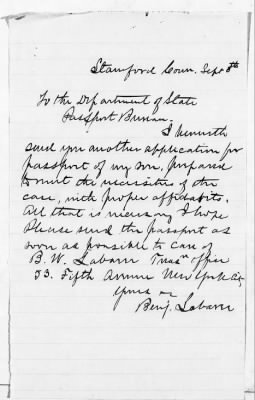 Stamford Conn. Sept 8th
To the Department of State
Passport Bureau.
I herewith
send you another application for
passport of my son, prepared
to meet the necessities of the
case, with proper affidavits.
All that is necessary I hope
Please send the passport as
soon as possible to care of
B. W. Labaree Treasr office
53. Fifth Avenue New York City
Yours
Benj. Labaree